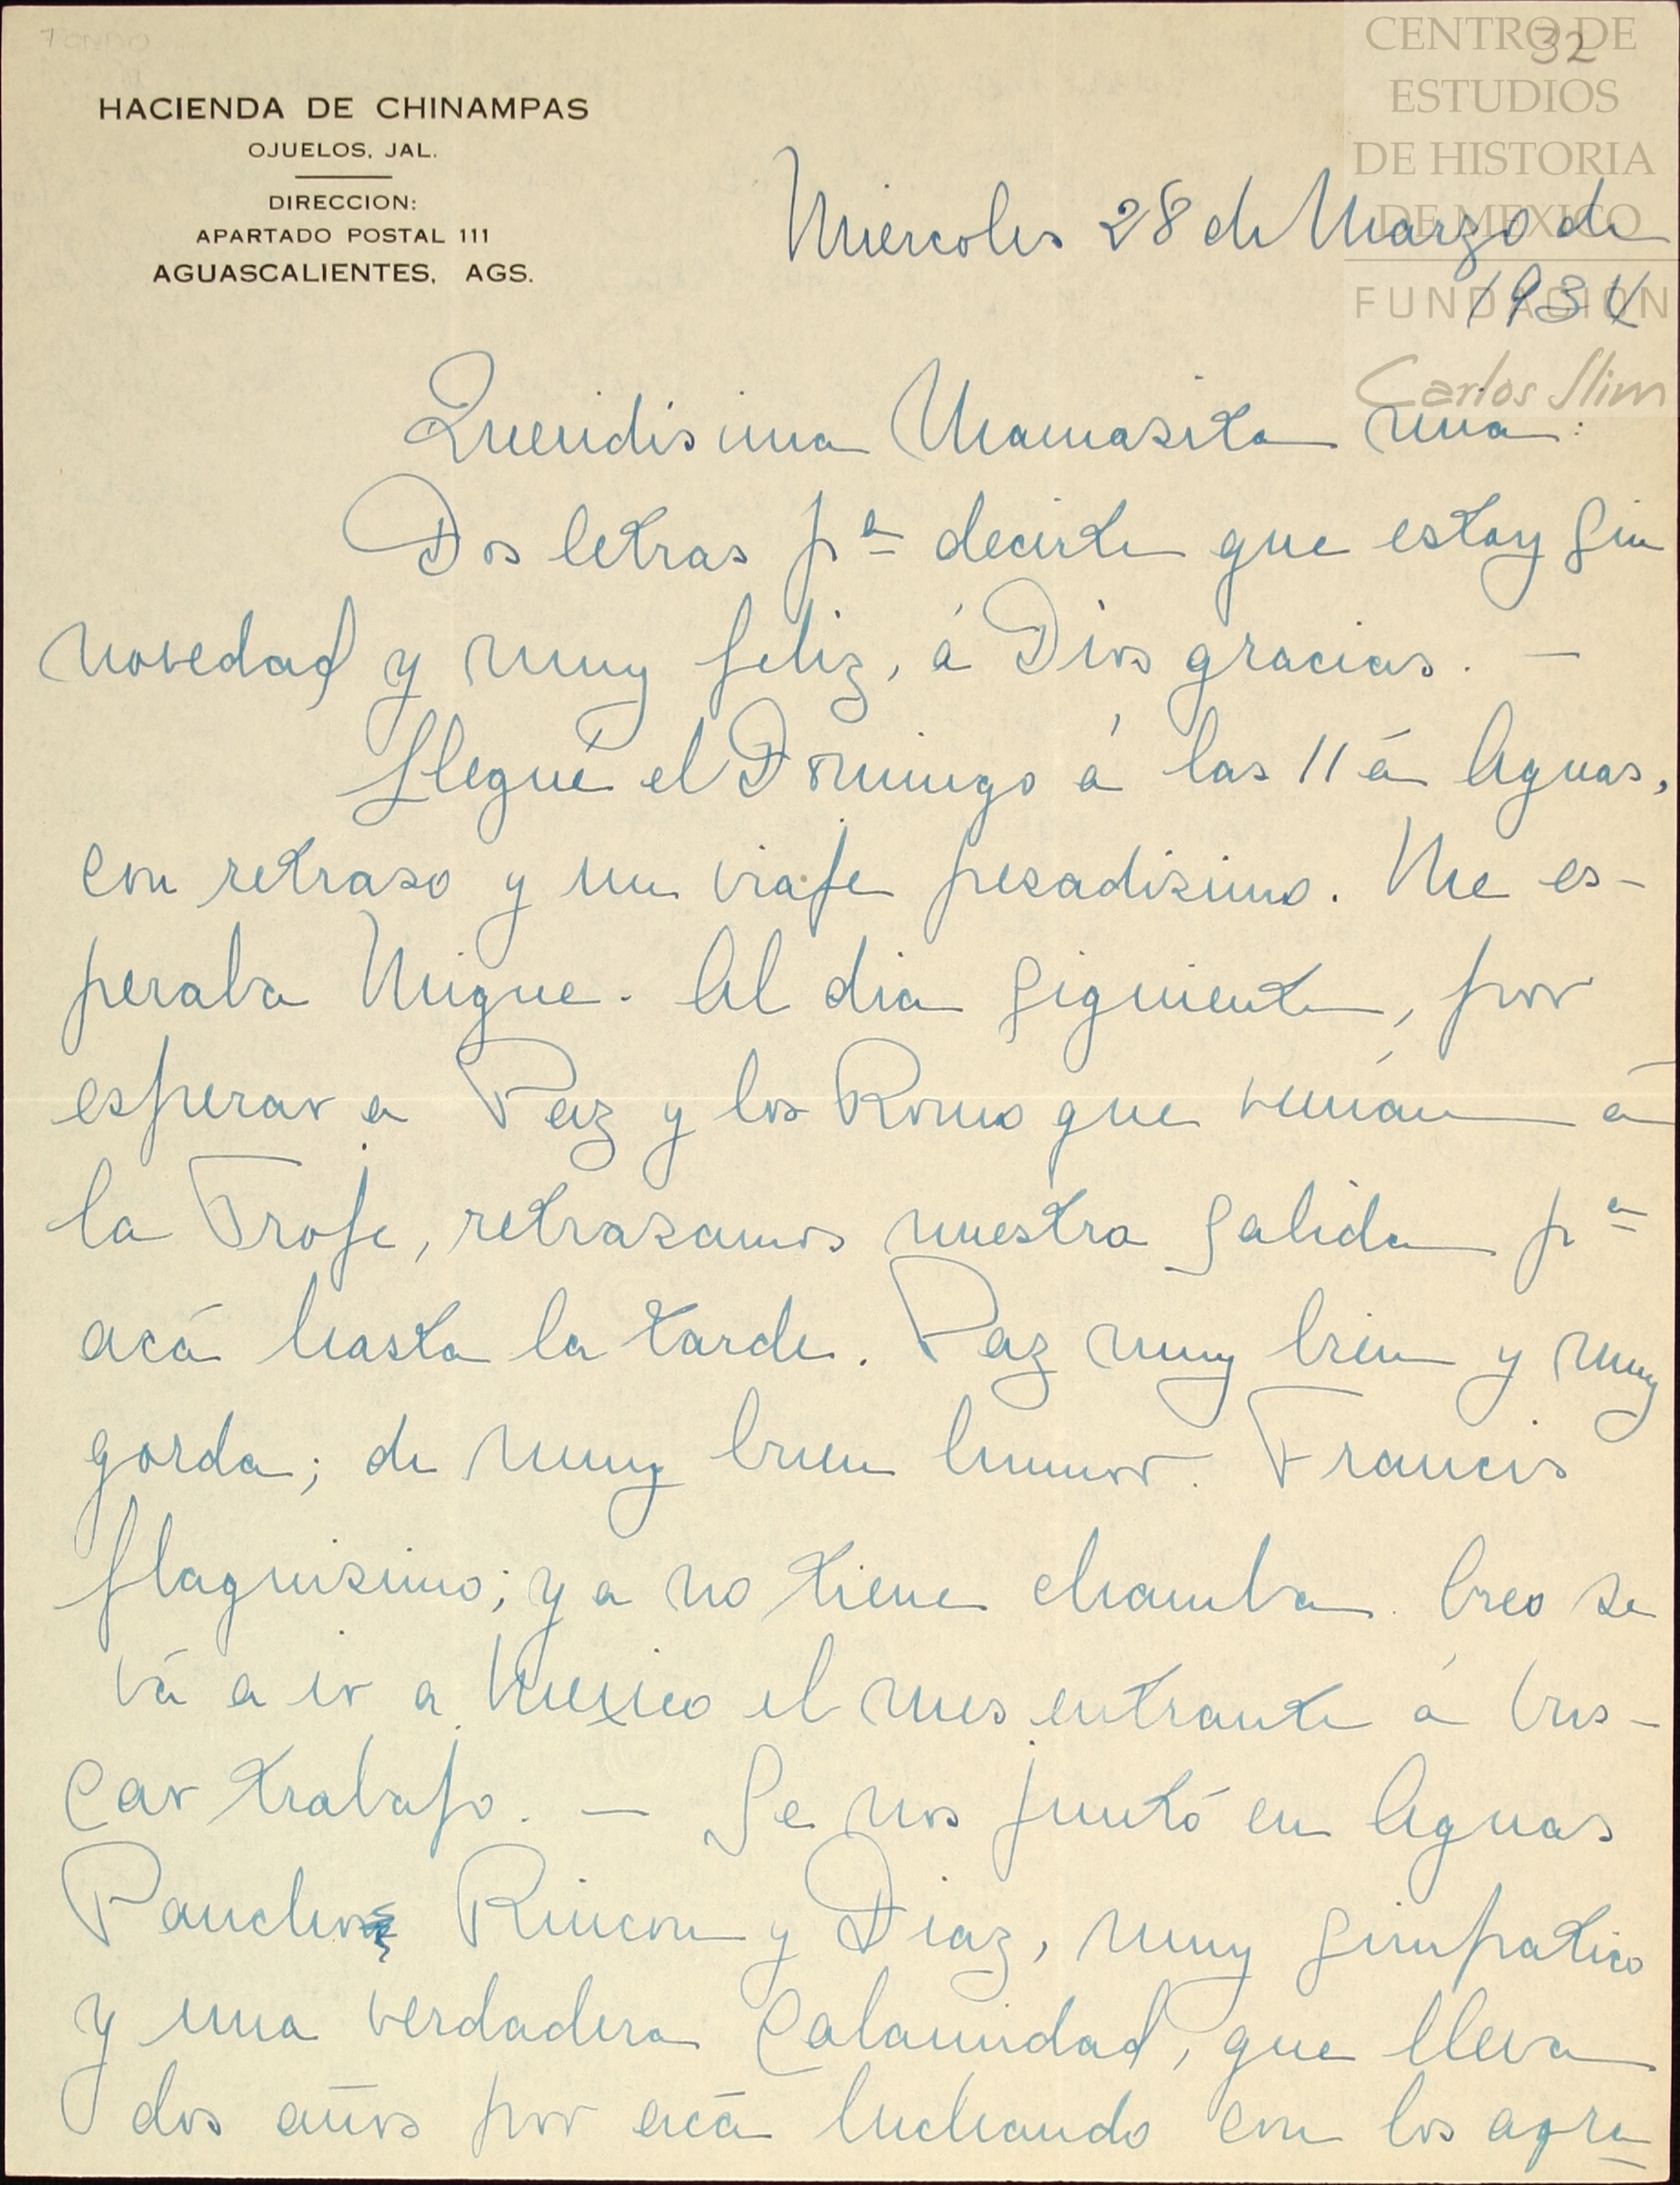 32
CENTRO DE
ESTUDIOS
DE HISTORIA
DE MEXICO
FUNDACION
Carlos Slim
HACIENDA DE CHINAMPAS
OJUELOS, JAL.
DIRECCION:
APARTADO POSTAL 111
AGUASCALIENTES, AGS.
Miercoles 28 de Marzo de
1934
Queridisima Mamasita mia:
Dos letras pª decirte que estoy sin
novedad y muy feliz, á Dios gracias. —
Llegué el Domingo á las 11 á Aguas,
con retraso y un viaje pesadisimo. Me es-
peraba Migue. Al dia siguiente, por
esperar a Paz y los Romo que venían á
la Troje, retrasamos nuestra salida pª
acá hasta la tarde. Paz muy bien y muy
gorda; de muy buen humor. Francis
flaquisimo; ya no tiene chamba. Creo se
vá a ir a Mexico el mes entrante á bus-
car trabajo. — Se nos juntó en Aguas
Pancho Rincon y Diaz, muy simpatico
y una verdadera calamidad, que lleva
dos años por acá luchando con los agra